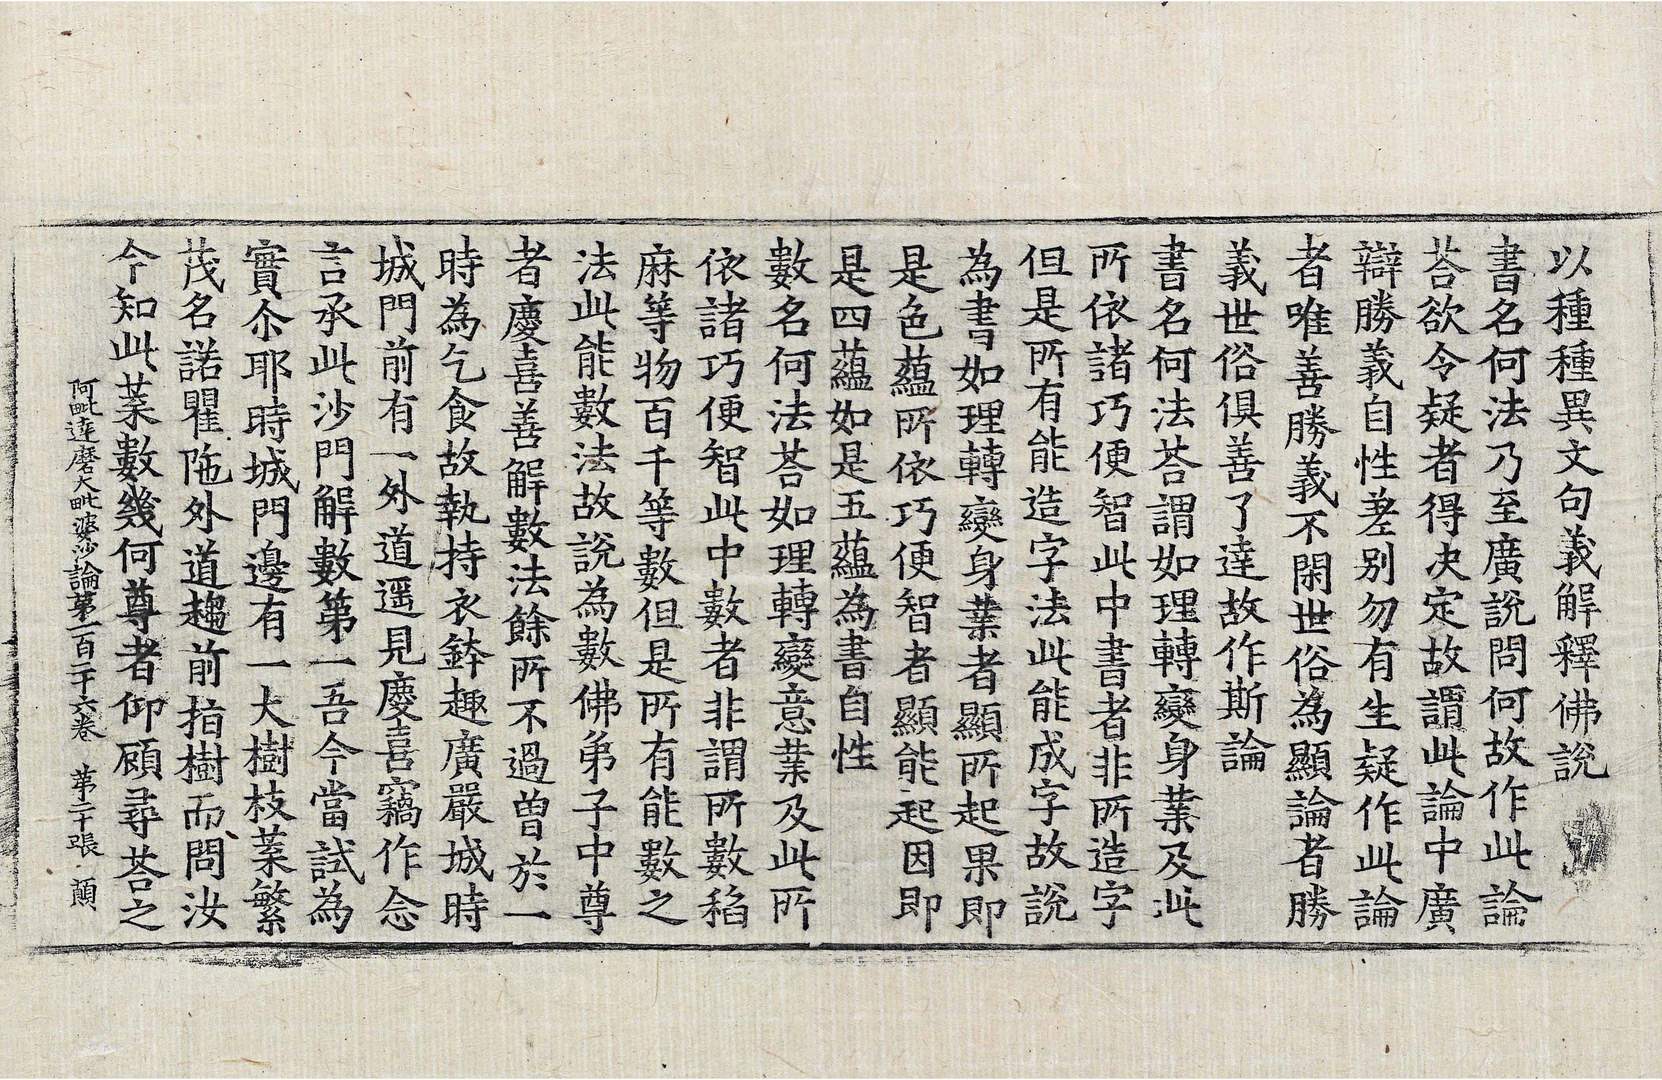 以種種異文句義解釋佛說
書名何法乃至廣說問何故作此論
荅欲令疑者得决定故謂此論中廣
辯勝義自性差别勿有生疑作此論
者唯善勝義不閑世俗為顯論者勝
義世俗俱善了達故作斯論
書名何法荅謂如理轉變身業及此
所依諸巧便智此中書者非所造字
但是所有能造字法此能成字故說
為書如理轉變身業者顯所起果即
是色蘊所依巧便智者顯能起因即
是四蘊如是五蘊為書自性
數名何法荅如理轉變意業及此所
依諸巧便智此中數者非謂所數稻
麻等物百千等數但是所有能數之
法此能數法故說為數佛弟子中尊
者慶喜善解數法餘所不過曾於一
時為乞食故執持衣鉢趣廣嚴城時
城門前有一外道遥見慶喜竊作念
言承此沙門解數第一吾今當試為
實尒耶時城門邊有一大樹枝葉繁
茂名諾瞿陁外道趨前指樹而問汝
今知此葉數幾何尊者仰顧尋荅之
阿毗達磨大毗婆沙論第一百二十六卷 第二十張 顛